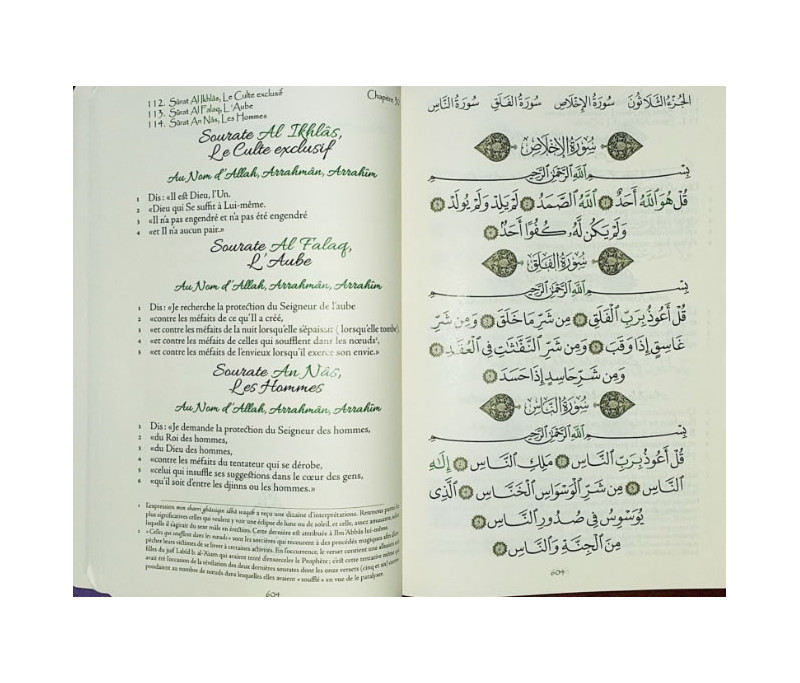 112. Sûrat Al Ikhlâs, Le Culte exclusif
113. Sûrat Al Falaq, L'Aube
114. Sûrat An Nâs, Les Hommes
Chapitre 30
Sourate Al Ikhlâs,
Le Culte exclusif
Au Nom d'Allah, Arrahmân, Arrahîm
1 Dis : «Il est Dieu, l'Un.
2 «Dieu qui Se suffit à Lui-même.
3 «Il n'a pas engendré et n'a pas été engendré
4 «et Il n'a aucun pair.»
Sourate Al Falaq,
L'Aube
Au Nom d'Allah, Arrahmân, Arrahîm
1 Dis : «Je recherche la protection du Seigneur de l'aube
2 «contre les méfaits de ce qu'Il a créé,
3 «et contre les méfaits de la nuit lorsqu'elle s'épaissit (lorsqu'elle tombe)¹,
4 «et contre les méfaits de celles qui soufflent dans les nœuds²,
5 «et contre les méfaits de l'envieux lorsqu'il exerce son envie.»
Sourate An Nâs,
Les Hommes
Au Nom d'Allah, Arrahmân, Arrahîm
1 Dis : «Je demande la protection du Seigneur des hommes,
2 «du Roi des hommes,
3 «du Dieu des hommes,
4 «contre les méfaits du tentateur qui se dérobe,
5 «celui qui insuffle ses suggestions dans le cœur des gens,
6 «qu'il soit d'entre les djinns ou les hommes.»
1 L'expression min sharri ghâsiqin idhâ waqab a reçu une dizaine d'interprétations. Retenons parmi les
plus significatives celles qui veulent y voir une éclipse de lune ou de soleil, et celle, assez amusante,
laquelle il s'agirait du sexe mâle en érection. Cette dernière est attribuée à Ibn 'Abbâs lui-même.
2 «Celles qui soufflent dans les nœuds» sont les sorcières qui recourent à des procédés magiques afin
pêcher leurs victimes de se livrer à certaines activités. En l'occurrence, le verset contient une allusion
filles du juif Labîd b. al-A'sam qui avaient tenté d'ensorceler le Prophète ; c'est cette tentative même qui
avait été l'occasion de la révélation des deux dernières sourates dont les onze versets (cinq et six)
pondaient au nombre de nœuds dans lesquelles elles avaient «soufflé» en vue de le paralyser.
604
الجُزْءُ الثَّلَاثُونَ سُورَةُ الإِخْلَاصِ سُورَةُ الفَلَقِ سُورَةُ النَّاسِ
سُورَةُ الإِخْلَاصِ
بِسْمِ ٱللَّهِ ٱلرَّحْمَٰنِ ٱلرَّحِيمِ
قُلْ هُوَ ٱللَّهُ أَحَدٌ ١ ٱللَّهُ ٱلصَّمَدُ ٢ لَمْ يَلِدْ وَلَمْ يُولَدْ ٣
وَلَمْ يَكُن لَّهُۥ كُفُوًا أَحَدٌۢ ٤
سُورَةُ الفَلَقِ
بِسْمِ ٱللَّهِ ٱلرَّحْمَٰنِ ٱلرَّحِيمِ
قُلْ أَعُوذُ بِرَبِّ ٱلْفَلَقِ ١ مِن شَرِّ مَا خَلَقَ ٢ وَمِن شَرِّ
غَاسِقٍ إِذَا وَقَبَ ٣ وَمِن شَرِّ ٱلنَّفَّٰثَٰتِ فِى ٱلْعُقَدِ ٤
وَمِن شَرِّ حَاسِدٍ إِذَا حَسَدَ ٥
سُورَةُ النَّاسِ
بِسْمِ ٱللَّهِ ٱلرَّحْمَٰنِ ٱلرَّحِيمِ
قُلْ أَعُوذُ بِرَبِّ ٱلنَّاسِ ١ مَلِكِ ٱلنَّاسِ ٢ إِلَٰهِ
ٱلنَّاسِ ٣ مِن شَرِّ ٱلْوَسْوَاسِ ٱلْخَنَّاسِ ٤ ٱلَّذِى
يُوَسْوِسُ فِى صُدُورِ ٱلنَّاسِ ٥
مِنَ ٱلْجِنَّةِ وَٱلنَّاسِ ٦
٦٠٤